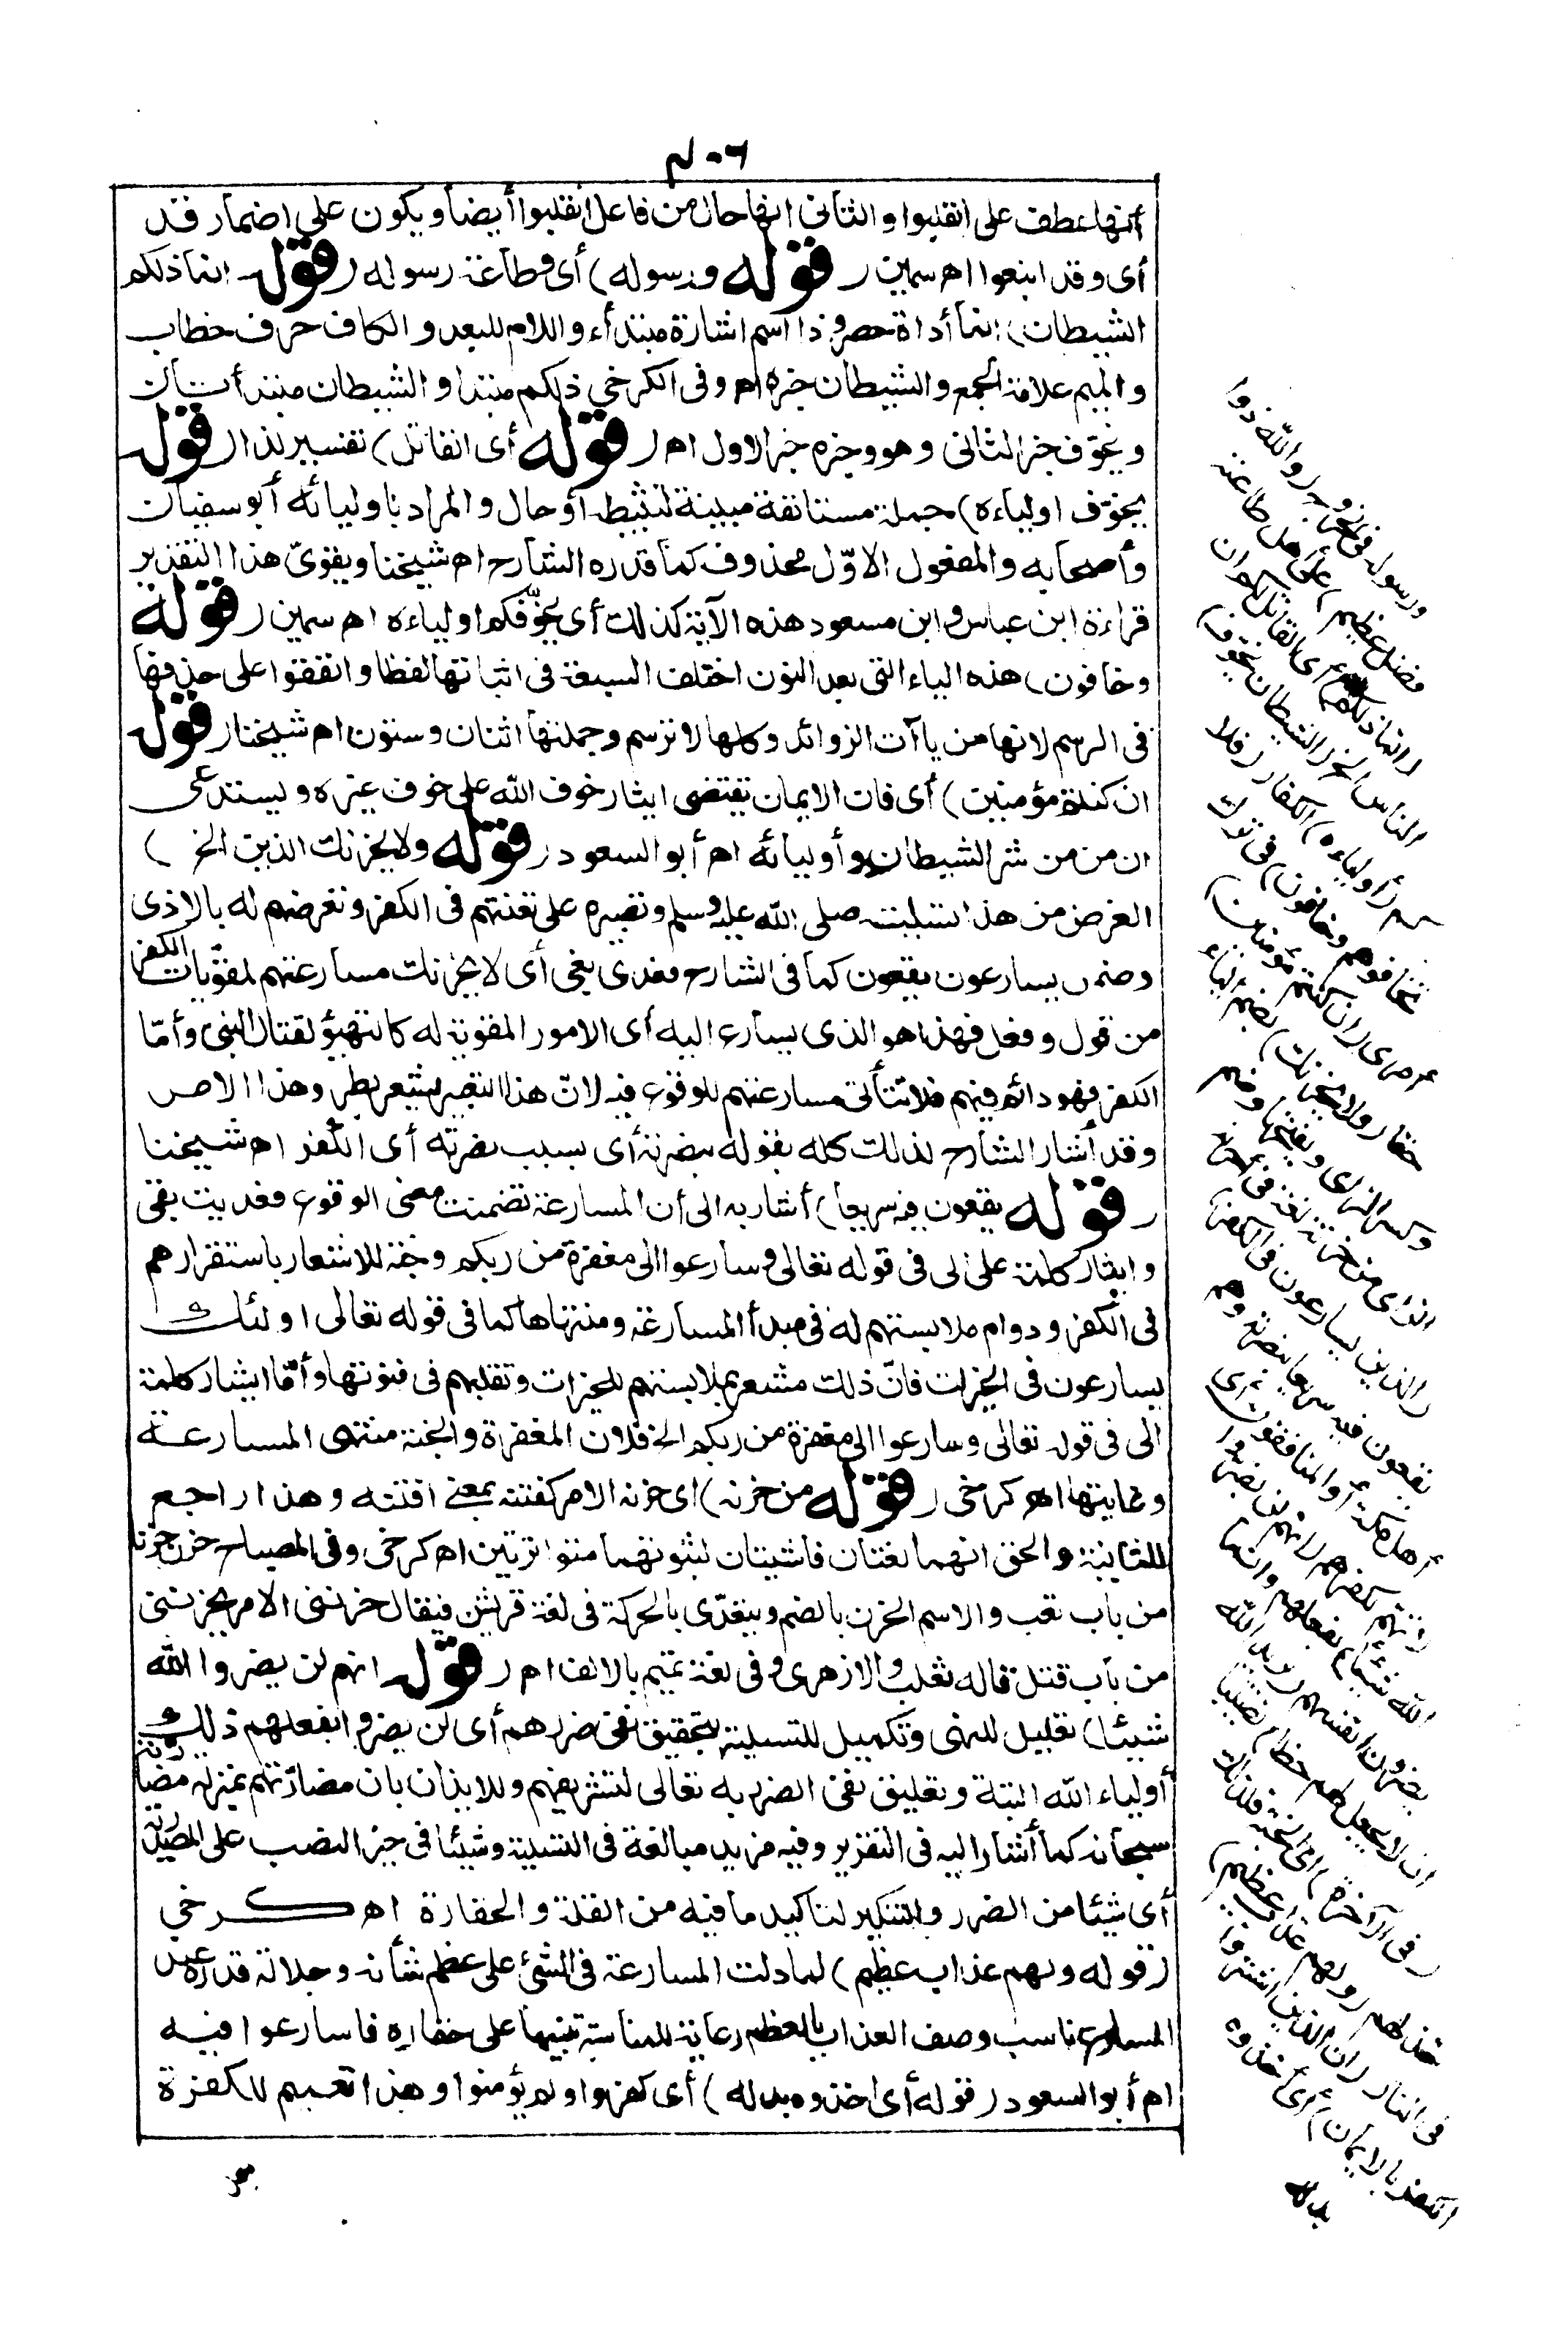 ٤٠٦
أنها عطف على انقلبوا والثانى انها حال من فاعل انقلبوا أيضا ويكون على اضمار قد
أى وقد اتبعوا اه سمين (قوله ورسوله) أى وطاعة رسوله (قوله انما ذلكم
الشيطان) انما أداة حصر وذا اسم اشارة مبتدأ واللام للبعد والكاف حرف خطاب
والميم علامة الجمع والشيطان خبره اه وفى الكرخي ذلكم مبتدا والشيطان مبتدأ ثان
ويخوّف خبر الثانى وهو وخبره خبر الاول اه (قوله أى القائل) تفسير لذا (قوله
يخوّف اولياءه) جملة مستانفة مبينة لتثبيطه أو حال والمراد باوليائه أبو سفيان
وأصحابه والمفعول الاوّل محذوف كما قدره الشارح اه شيخنا ويقوىّ هذا التقدير
قراءة ابن عباس وابن مسعود هذه الآية كذلك أى يخوّفكم اولياءه اه سمين (قوله
وخافون) هذه الياء التى بعد النون اختلف السبعة فى اثباتها لفظا واتفقوا على حذفها
فى الرسم لانها من ياآت الزوائد وكلها لا ترسم وجملتها اثنان وستون اه شيخنا (قوله
ان كنتم مؤمنين) أى فان الايمان يقتضى ايثار خوف الله على خوف غيره ويستدعى
الامن من شر الشيطان وأوليائه اه أبو السعود (قوله ولا يحزنك الذين الخ)
الغرض من هذا تسليته صلى الله عليه وسلم وتصبيره على تعنتهم فى الكفر وتعرضهم له بالاذى
وضمن يسارعون يقعون كما فى الشارح فعدى بفى أى لا يحزنك مسارعتهم لمقوّيات الكفر
من قول وفعل فهذا هو الذى يسارع اليه أى الامور المقوية له كالتهيؤ لقتال النبى وأمّا
الكفر فهو دائم فيهم فلا تتأتى مسارعتهم للوقوع فيه لانّ هذا التعبير يشعر بطرو هذا الامر
وقد أشار الشارح لذلك كله بقوله بنصرته أى بسبب نصرته أى الكفر اه شيخنا
(قوله يقعون فيه سريعا) أشار به الى أن المسارعة تضمنت معنى الوقوع فعديت بفى
وايثار كلمة على الى فى قوله تعالى وسارعوا الى مغفرة من ربكم وجنة للاشعار باستقرارهم
فى الكفر ودوام ملابستهم له فى مبدأ المسارعة ومنتهاها كما فى قوله تعالى اولئك
يسارعون فى الخيرات فانّ ذلك مشعر بملابستهم للخيرات وتقلبهم فى فنونها وأمّا ايثار كلمة
الى فى قوله تعالى وسارعوا الى مغفرة من ربكم الخ فلان المغفرة والجنة منتهى المسارعة
وغايتها اه كرخى (قوله من حزنه) اى حزنه الامر كفتنه بمعنى افتنه وهذا راجع
للثانية والحق انهما لغتان فاشيتان لثبوتهما متواترتين اه كرخى وفى المصباح حزن حزنا
من باب تعب والاسم الحزن بالضم ويتعدّى بالحركة فى لغة قريش فيقال حزننى الامر يحزننى
من باب قتل قاله ثعلب والازهرى وفى لغة تميم بالالف اه (قوله انهم لن يضروا الله
شيئا) تعليل للنهى وتكميل للتسلية بتحقيق نفى ضررهم أى لن يضروا بفعلهم ذلك
أولياء الله البتة وتعليق نفى الضر به تعالى لتشريفهم وللايذان بان مضارّتهم بمنزلة مضارته
سبحانه كما أشار اليه فى التقرير وفيه مزيد مبالغة فى التسلية وشيئا فى حيز النصب على المصدرية
أى شيئا من الضرر والتنكير لتاكيد ما فيه من القلة والحقارة اه كرخي
(قوله ولهم عذاب عظيم) لما دلت المسارعة فى الشئ على عظم شأنه وجلالة قدره عند
المسارع ناسب وصف العذاب بالعظم رعاية للمناسبة تنبيها على حقارة ما سارعوا فيه
اه أبو السعود (قوله أى اخذوه بدله) أى كفروا ولم يؤمنوا وهذا تعميم للكفرة
ورسوله فى الخروج (والله ذوا
فضل عظيم) على أهل طاعته
(انما ذلكم) أى القائل لكم ان
الناس الخ (الشيطان يخوّف)
كم (أولياءه) الكفار (فلا
تخافوهم وخافون) فى ترك
أمرى (ان كنتم مؤمنين)
حقا (ولا يحزنك) بضم الياء
وكسر الزاى وبفتحها وضم
الزاى من حزنه لغة فى أحزنه
(الذين يسارعون فى الكفر)
يقعون فيه سريعا بنصرته وهم
أهل مكة أو المنافقون أى
لا تهتم لكفرهم (انهم لن يضروا
الله شيئا) بفعلهم وانما
يضرون انفسهم (يريد الله
ان لا يجعل لهم حظا) نصيبا
(فى الآخرة) أى الجنة فلذلك
خذلهم (ولهم عذاب عظيم)
فى النار (ان الذين اشتروا
الكفر بالايمان) أى أخذوه
بدله